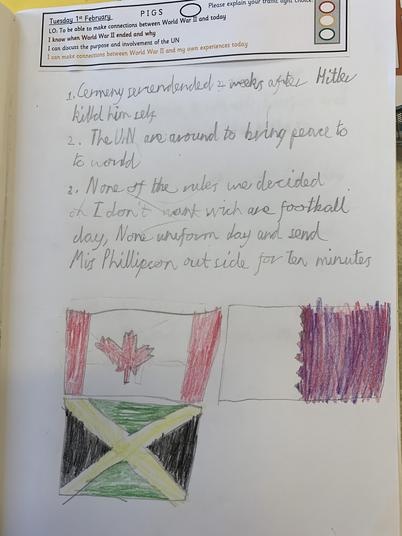 Please explain your traffic light choice.
Tuesday 1st February
PIGS
LO: To be able to make connections between World War II and today
I know when World War II ended and why
I can discuss the purpose and involvement of the UN
I can make connections between World War II and my own experiences today
1. Cermeny surrendended 2 weeks after Hitler
killd him self
2. The U.N are around to bring peace to
to world
3. None of the rules we decided
on I don't want wich are football
day, None uniform day and send
Mis Phillipson out side for ten minutes